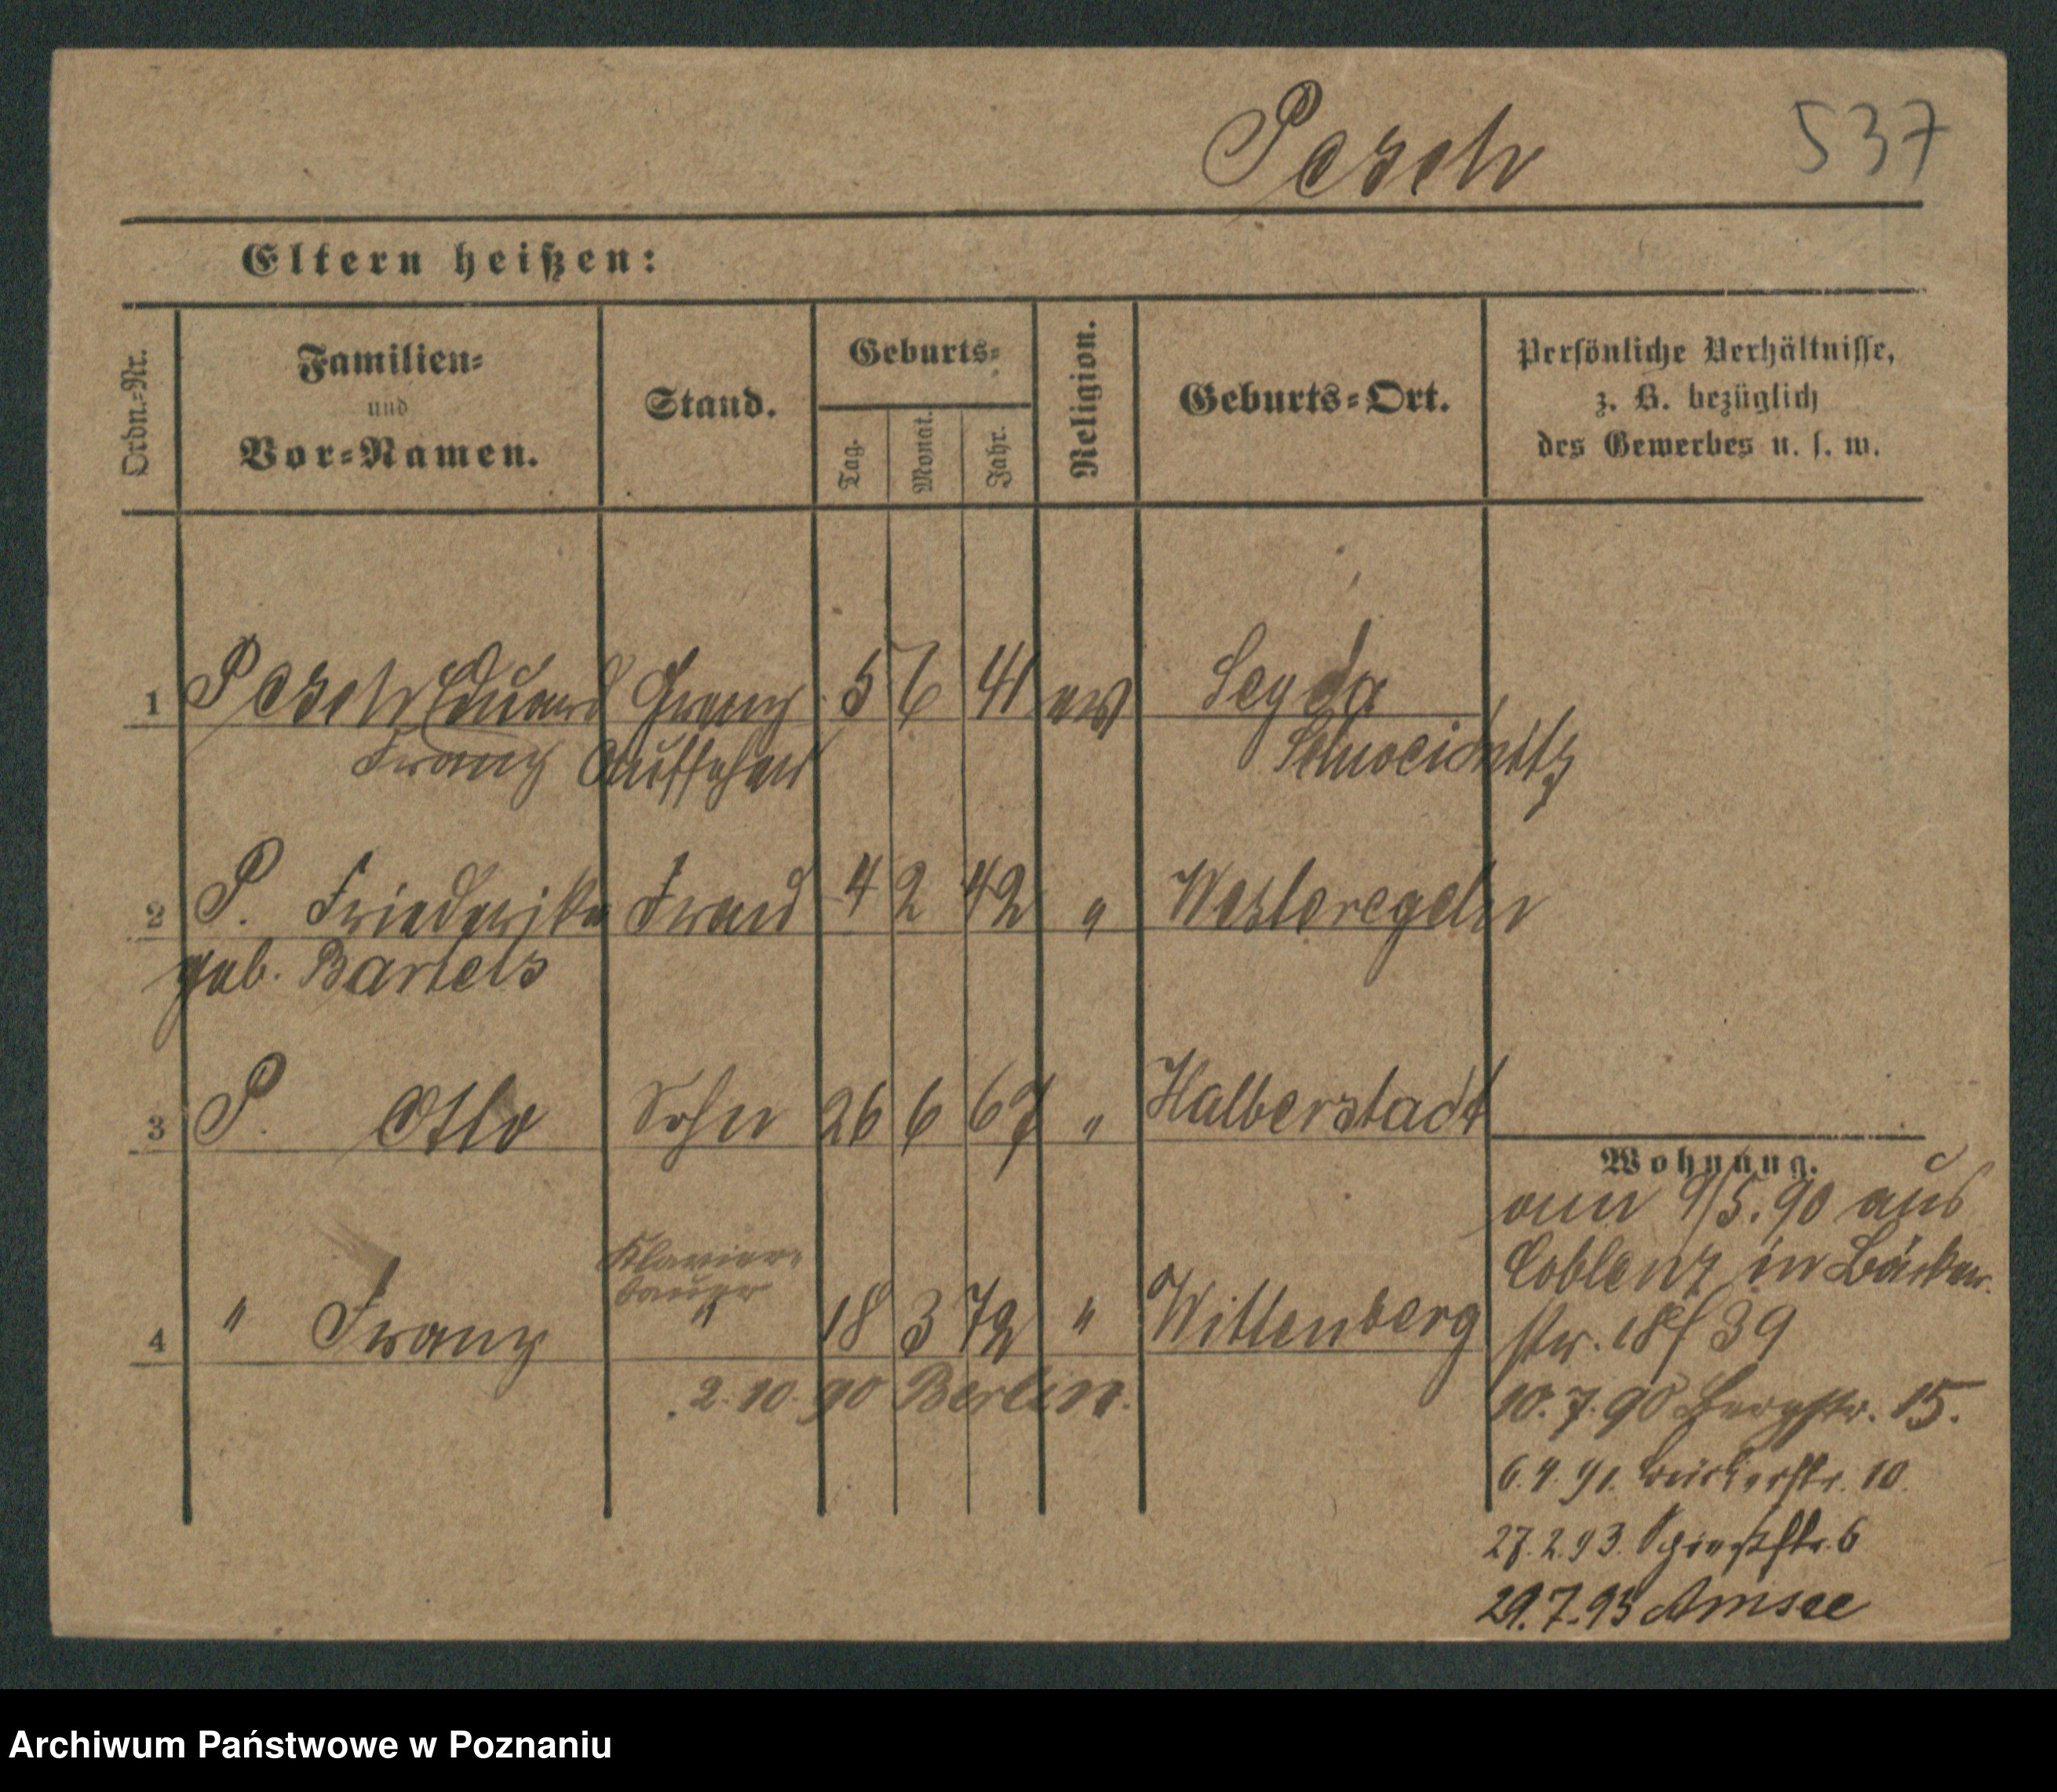 Pesch 537
Eltern heißen:
Ordn.-Nr.
Familien-
und
Vor-Namen.
Stand.
Geburts-
Tag.
Monat.
Jahr.
Religion.
Geburts-Ort.
Persönliche Verhältnisse,
z. B. bezüglich
des Gewerbes u. s. w.
1 Pesch Eduard Grenz 5 6 41 ev Seyda
Franz Aufseher Schweidnitz
2 P. Friederike Frau 4 2 42 " Westeregeln
geb. Bartels
3 P. Otto Sohn 26 6 67 " Halberstadt
Klavier-
bauer
4 " Franz " 18 3 72 " Wittenberg
2.10.90 Berlin.
Wohnung.
9/5.90 aus
Coblenz in Bäcker
str. 18 f 39
10.7.90 Bergstr. 15.
6.4.91. Bäckerstr. 10.
27.2.93. 6
29.7.93 Amsee
Archiwum Państwowe w Poznaniu